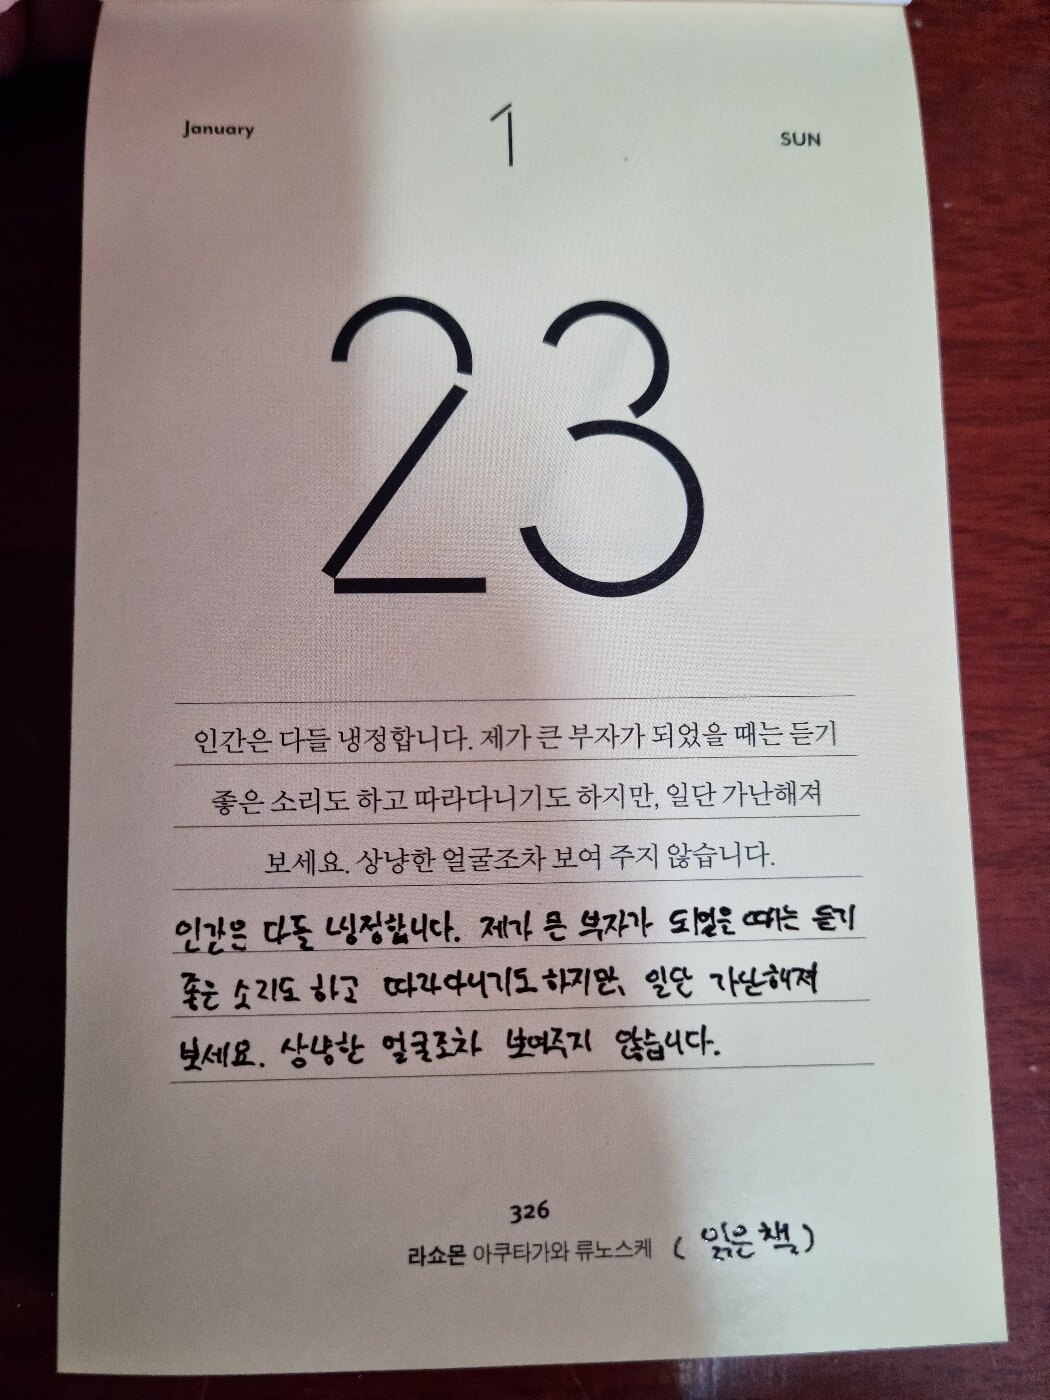 January 1 SUN
23
인간은 다들 냉정합니다. 제가 큰 부자가 되었을 때는 듣기
좋은 소리도 하고 따라다니기도 하지만, 일단 가난해져
보세요. 상냥한 얼굴조차 보여 주지 않습니다.
인간은 다들 냉정합니다. 제가 큰 부자가 되었을 때는 듣기
좋은 소리도 하고 따라다니기도 하지만, 일단 가난해져
보세요. 상냥한 얼굴조차 보여주지 않습니다.
326
라쇼몬 아쿠타가와 류노스케 ( 읽은 책 )